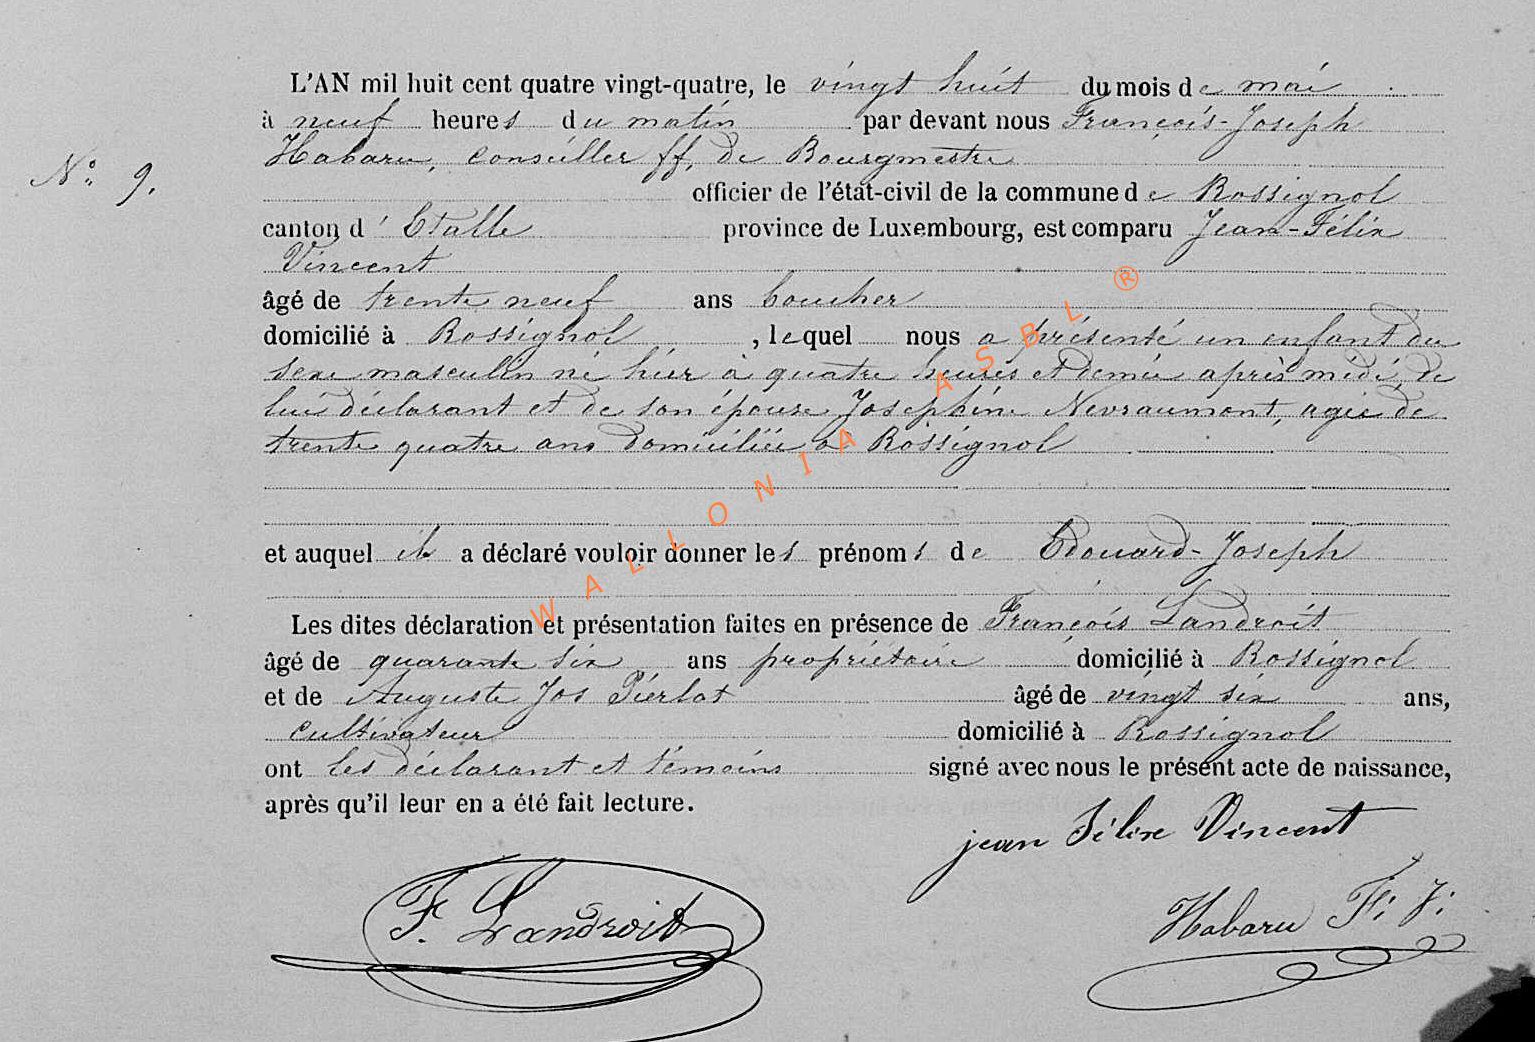 L'AN mil huit cent quatre vingt-quatre, le vingt huit du mois de mai
à neuf heures du matin par devant nous François-Joseph
Habaru, conseiller ff, de Bourgmestre
N° 9.
officier de l'état-civil de la commune de Rossignol
canton d' Etalle province de Luxembourg, est comparu Jean-Félix
Vincent
âgé de trente neuf ans boucher
domicilié à Rossignol, lequel nous a présenté un enfant du
sexe masculin né hier à quatre heures et demie après midi, de
lui déclarant et de son épouse Joséphine Nevraumont, agée de
trente quatre ans domiciliée à Rossignol
et auquel il a déclaré vouloir donner les prénoms de Edouard-Joseph
Les dites déclaration et présentation faites en présence de François Landroit
âgé de quarante six ans propriétaire domicilié à Rossignol
et de Auguste Jos Pierlot âgé de vingt six ans,
cultivateur domicilié à Rossignol
ont les déclarant et témoins signé avec nous le présent acte de naissance,
après qu'il leur en a été fait lecture.
jean félix Vincent
F. Landroit
Habaru F: J:
WALLONIA ASBL ®